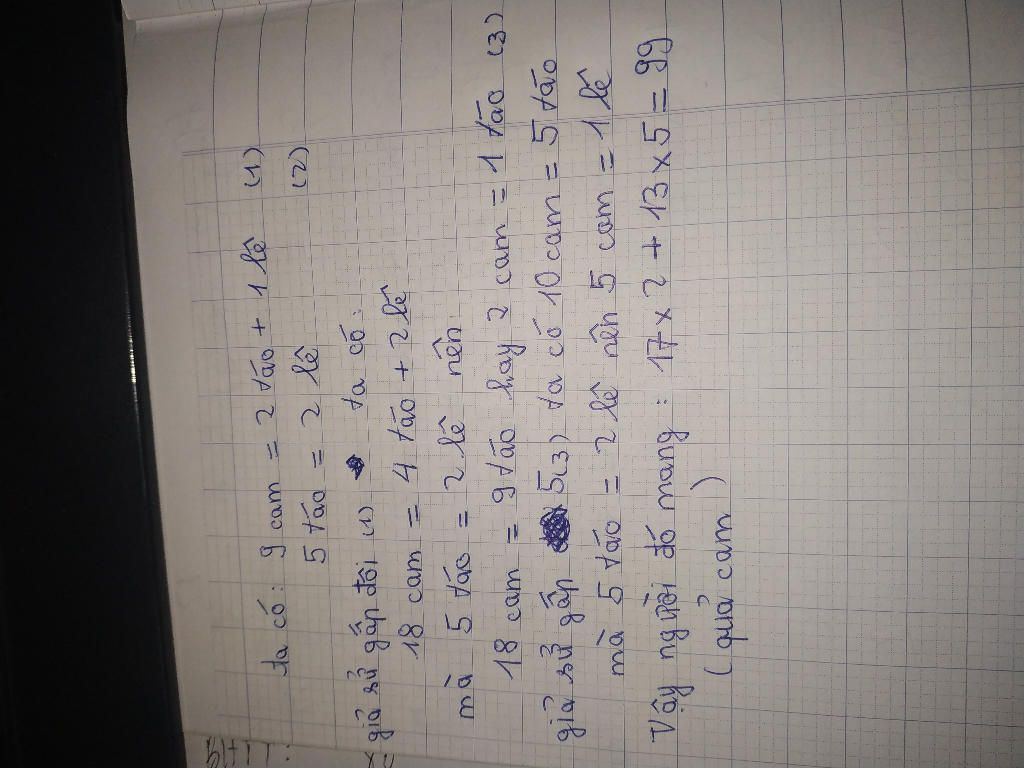 ta có: 9 cam = 2 táo + 1 lê (1)
5 táo = 2 lê (2)
giả sử gấp đôi (1) ta có:
18 cam = 4 táo + 2 lê
mà 5 táo = 2 lê nên
18 cam = 9 táo hay 2 cam = 1 táo (3)
giả sử gấp 5(3) ta có 10 cam = 5 táo
mà 5 táo = 2 lê nên 5 cam = 1 lê
Vậy người đó mang: 17 x 2 + 13 x 5 = 99
(quả cam)